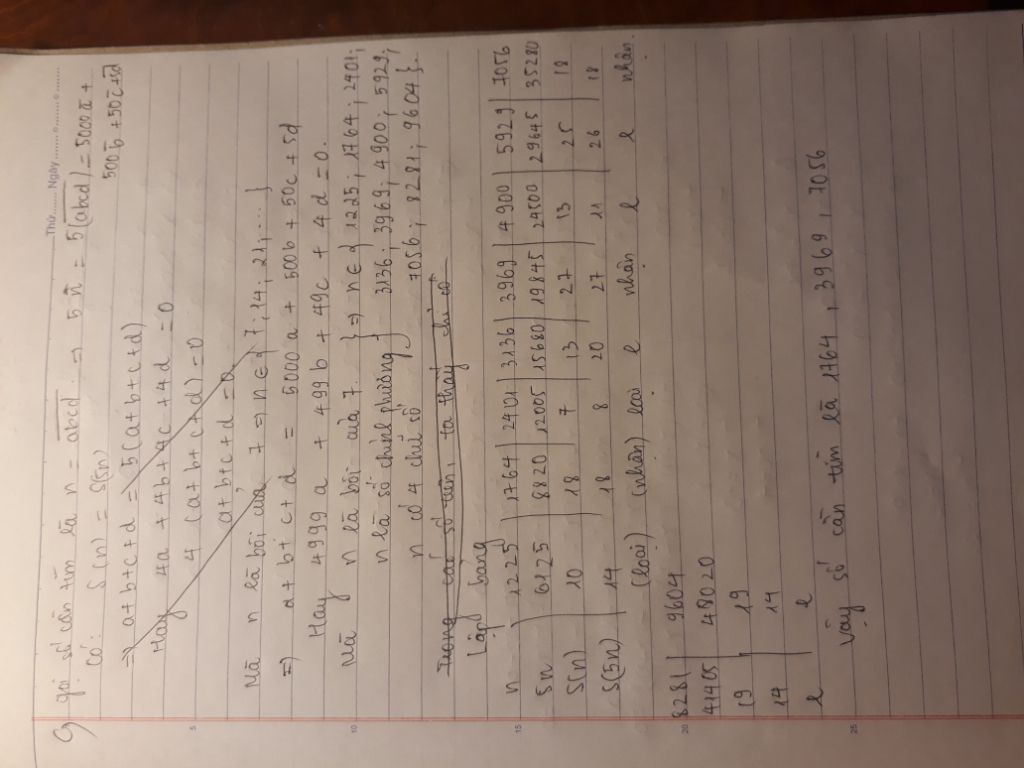 Thứ........... Ngày ...........o...........o......
9) gọi số cần tìm là n = abcd. => 5n = 5(abcd) = 5000a +
500b + 50c + 5d
Có: S(n) = S(5n)
=> a+b+c+d = 5(a+b+c+d)
Hay 4a + 4b + 4c + 4d = 0
4 (a+b+c+d) = 0
a+b+c+d = 0
Mà n là bội của 7 => n ∈ { 7; 14; 21; ... }
=) a+b+c+d = 5000a + 500b + 50c + 5d
Hay 4999a + 499b + 49c + 4d = 0.
Mà n là bội của 7. } => n ∈ { 1225; 1764; 2401;
n là số chính phương } 3136; 3969; 4900; 5929;
n có 4 chữ số 7056; 8281; 9604 }.
Trong các số trên, ta thấy chỉ có
Lập bảng
n 1225 1764 2401 3136 3969 4900 5929 7056
5n 6125 8820 12005 15680 19845 24500 29645 35280
S(n) 10 18 7 13 27 13 25 18
S(5n) 14 18 8 20 27 11 26 18
(loại) (nhận) loại l nhận l l nhận.
8281 9604
41405 48020
19 19
14 14
l l
Vậy số cần tìm là 1764, 3969, 7056
5
10
15
20
25